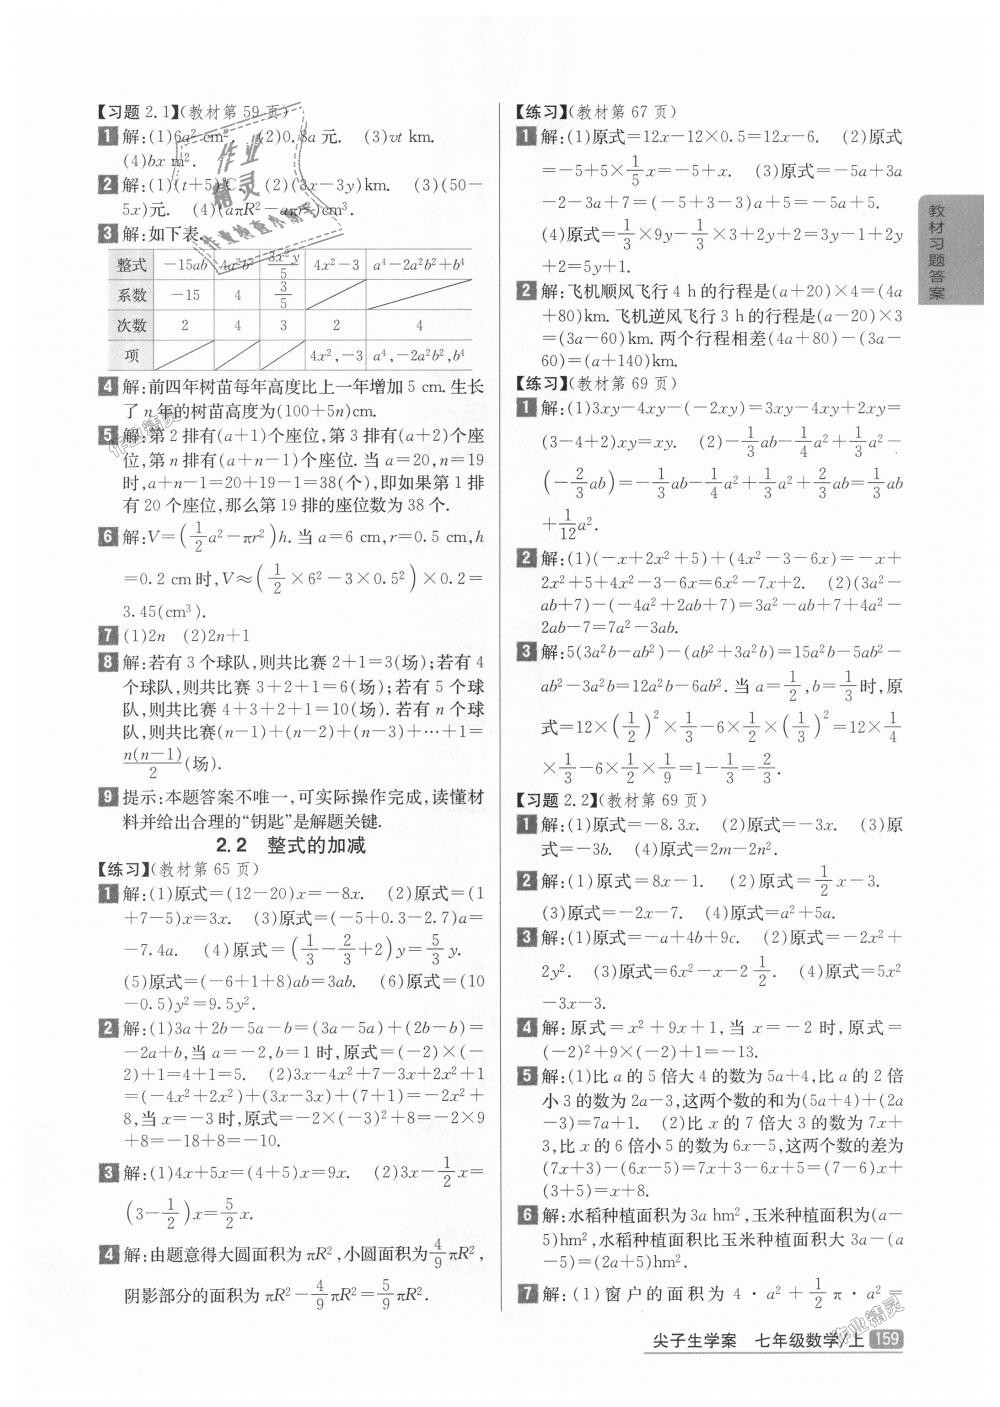 【习题2.1】(教材第59页)
1 解:(1)6a² cm². (2)0.8a 元. (3)vt km.
(4)bx m².
2 解:(1)(t+5)℃. (2)(3x-3y)km. (3)(50-
5x)元. (4)(aπR²-aπr²)cm³.
3 解:如下表.
整式 -15ab 4a²b² 3x²y/5 4x²-3 a⁴-2a²b²+b⁴
系数 -15 4 3/5
次数 2 4 3 2 4
项 4x²,-3 a⁴,-2a²b²,b⁴
4 解:前四年树苗每年高度比上一年增加5 cm.生长
了n年的树苗高度为(100+5n)cm.
5 解:第2排有(a+1)个座位,第3排有(a+2)个座
位,第n排有(a+n-1)个座位.当a=20,n=19
时,a+n-1=20+19-1=38(个),即如果第1排
有20个座位,那么第19排的座位数为38个.
6 解:V=(1/2 a²-πr²)h.当a=6 cm,r=0.5 cm,h
=0.2 cm时,V≈(1/2×6²-3×0.5²)×0.2=
3.45(cm³).
7 (1)2n (2)2n+1
8 解:若有3个球队,则共比赛2+1=3(场);若有4
个球队,则共比赛3+2+1=6(场);若有5个球
队,则共比赛4+3+2+1=10(场).若有n个球
队,则共比赛(n-1)+(n-2)+(n-3)+…+1=
n(n-1)/2(场).
9 提示:本题答案不唯一,可实际操作完成,读懂材
料并给出合理的“钥匙”是解题关键.
2.2 整式的加减
【练习】(教材第65页)
1 解:(1)原式=(12-20)x=-8x. (2)原式=(1
+7-5)x=3x. (3)原式=(-5+0.3-2.7)a=
-7.4a. (4)原式=(1/3-2/3+2)y=5/3 y.
(5)原式=(-6+1+8)ab=3ab. (6)原式=(10
-0.5)y²=9.5y².
2 解:(1)3a+2b-5a-b=(3a-5a)+(2b-b)=
-2a+b,当a=-2,b=1时,原式=(-2)×(-
2)+1=4+1=5. (2)3x-4x²+7-3x+2x²+1
=(-4x²+2x²)+(3x-3x)+(7+1)=-2x²+
8,当x=-3时,原式=-2×(-3)²+8=-2×9
+8=-18+8=-10.
3 解:(1)4x+5x=(4+5)x=9x. (2)3x-1/2 x=
(3-1/2)x=5/2 x.
4 解:由题意得大圆面积为πR²,小圆面积为4/9 πR²,
阴影部分的面积为πR²-4/9 πR²=5/9 πR².
【练习】(教材第67页)
1 解:(1)原式=12x-12×0.5=12x-6. (2)原式
=-5+5×1/5 x=-5+x. (3)原式=-5a+3a
-2-3a+7=(-5+3-3)a+5=-5a+5.
(4)原式=1/3×9y-1/3×3+2y+2=3y-1+2y
+2=5y+1.
2 解:飞机顺风飞行4 h的行程是(a+20)×4=(4a
+80)km.飞机逆风飞行3 h的行程是(a-20)×3
=(3a-60)km.两个行程相差(4a+80)-(3a-
60)=(a+140)km.
【练习】(教材第69页)
1 解:(1)3xy-4xy-(-2xy)=3xy-4xy+2xy=
(3-4+2)xy=xy. (2)-1/3 ab-1/4 a²+1/3 a²-
(-2/3 ab)=-1/3 ab-1/4 a²+1/3 a²+2/3 ab=1/3 ab
+1/12 a².
2 解:(1)(-x+2x²+5)+(4x²-3-6x)=-x+
2x²+5+4x²-3-6x=6x²-7x+2. (2)(3a²-
ab+7)-(-4a²+2ab+7)=3a²-ab+7+4a²-
2ab-7=7a²-3ab.
3 解:5(3a²b-ab²)-(ab²+3a²b)=15a²b-5ab²-
ab²-3a²b=12a²b-6ab².当a=1/2,b=1/3时,原
式=12×(1/2)²×1/3-6×1/2×(1/3)²=12×1/4
×1/3-6×1/2×1/9=1-1/3=2/3.
【习题2.2】(教材第69页)
1 解:(1)原式=-8.3x. (2)原式=-3x. (3)原
式=-3b. (4)原式=2m-2n².
2 解:(1)原式=8x-1. (2)原式=1/2 x-3.
(3)原式=-2x-7. (4)原式=a²+5a.
3 解:(1)原式=-a+4b+9c. (2)原式=-2x²+
2y². (3)原式=6x²-x-2 1/2. (4)原式=5x²
-3x-3.
4 解:原式=x²+9x+1,当x=-2时,原式=
(-2)²+9×(-2)+1=-13.
5 解:(1)比a的5倍大4的数为5a+4,比a的2倍
小3的数为2a-3,这两个数的和为(5a+4)+(2a
-3)=7a+1. (2)比x的7倍大3的数为7x+
3,比x的6倍小5的数为6x-5,这两个数的差为
(7x+3)-(6x-5)=7x+3-6x+5=(7-6)x+
(3+5)=x+8.
6 解:水稻种植面积为3a hm²,玉米种植面积为(a-
5)hm²,水稻种植面积比玉米种植面积大3a-(a
-5)=(2a+5)hm².
7 解:(1)窗户的面积为4·a²+1/2 π·a²=
教材习题答案
尖子生学案 七年级数学/上 159
作业精灵